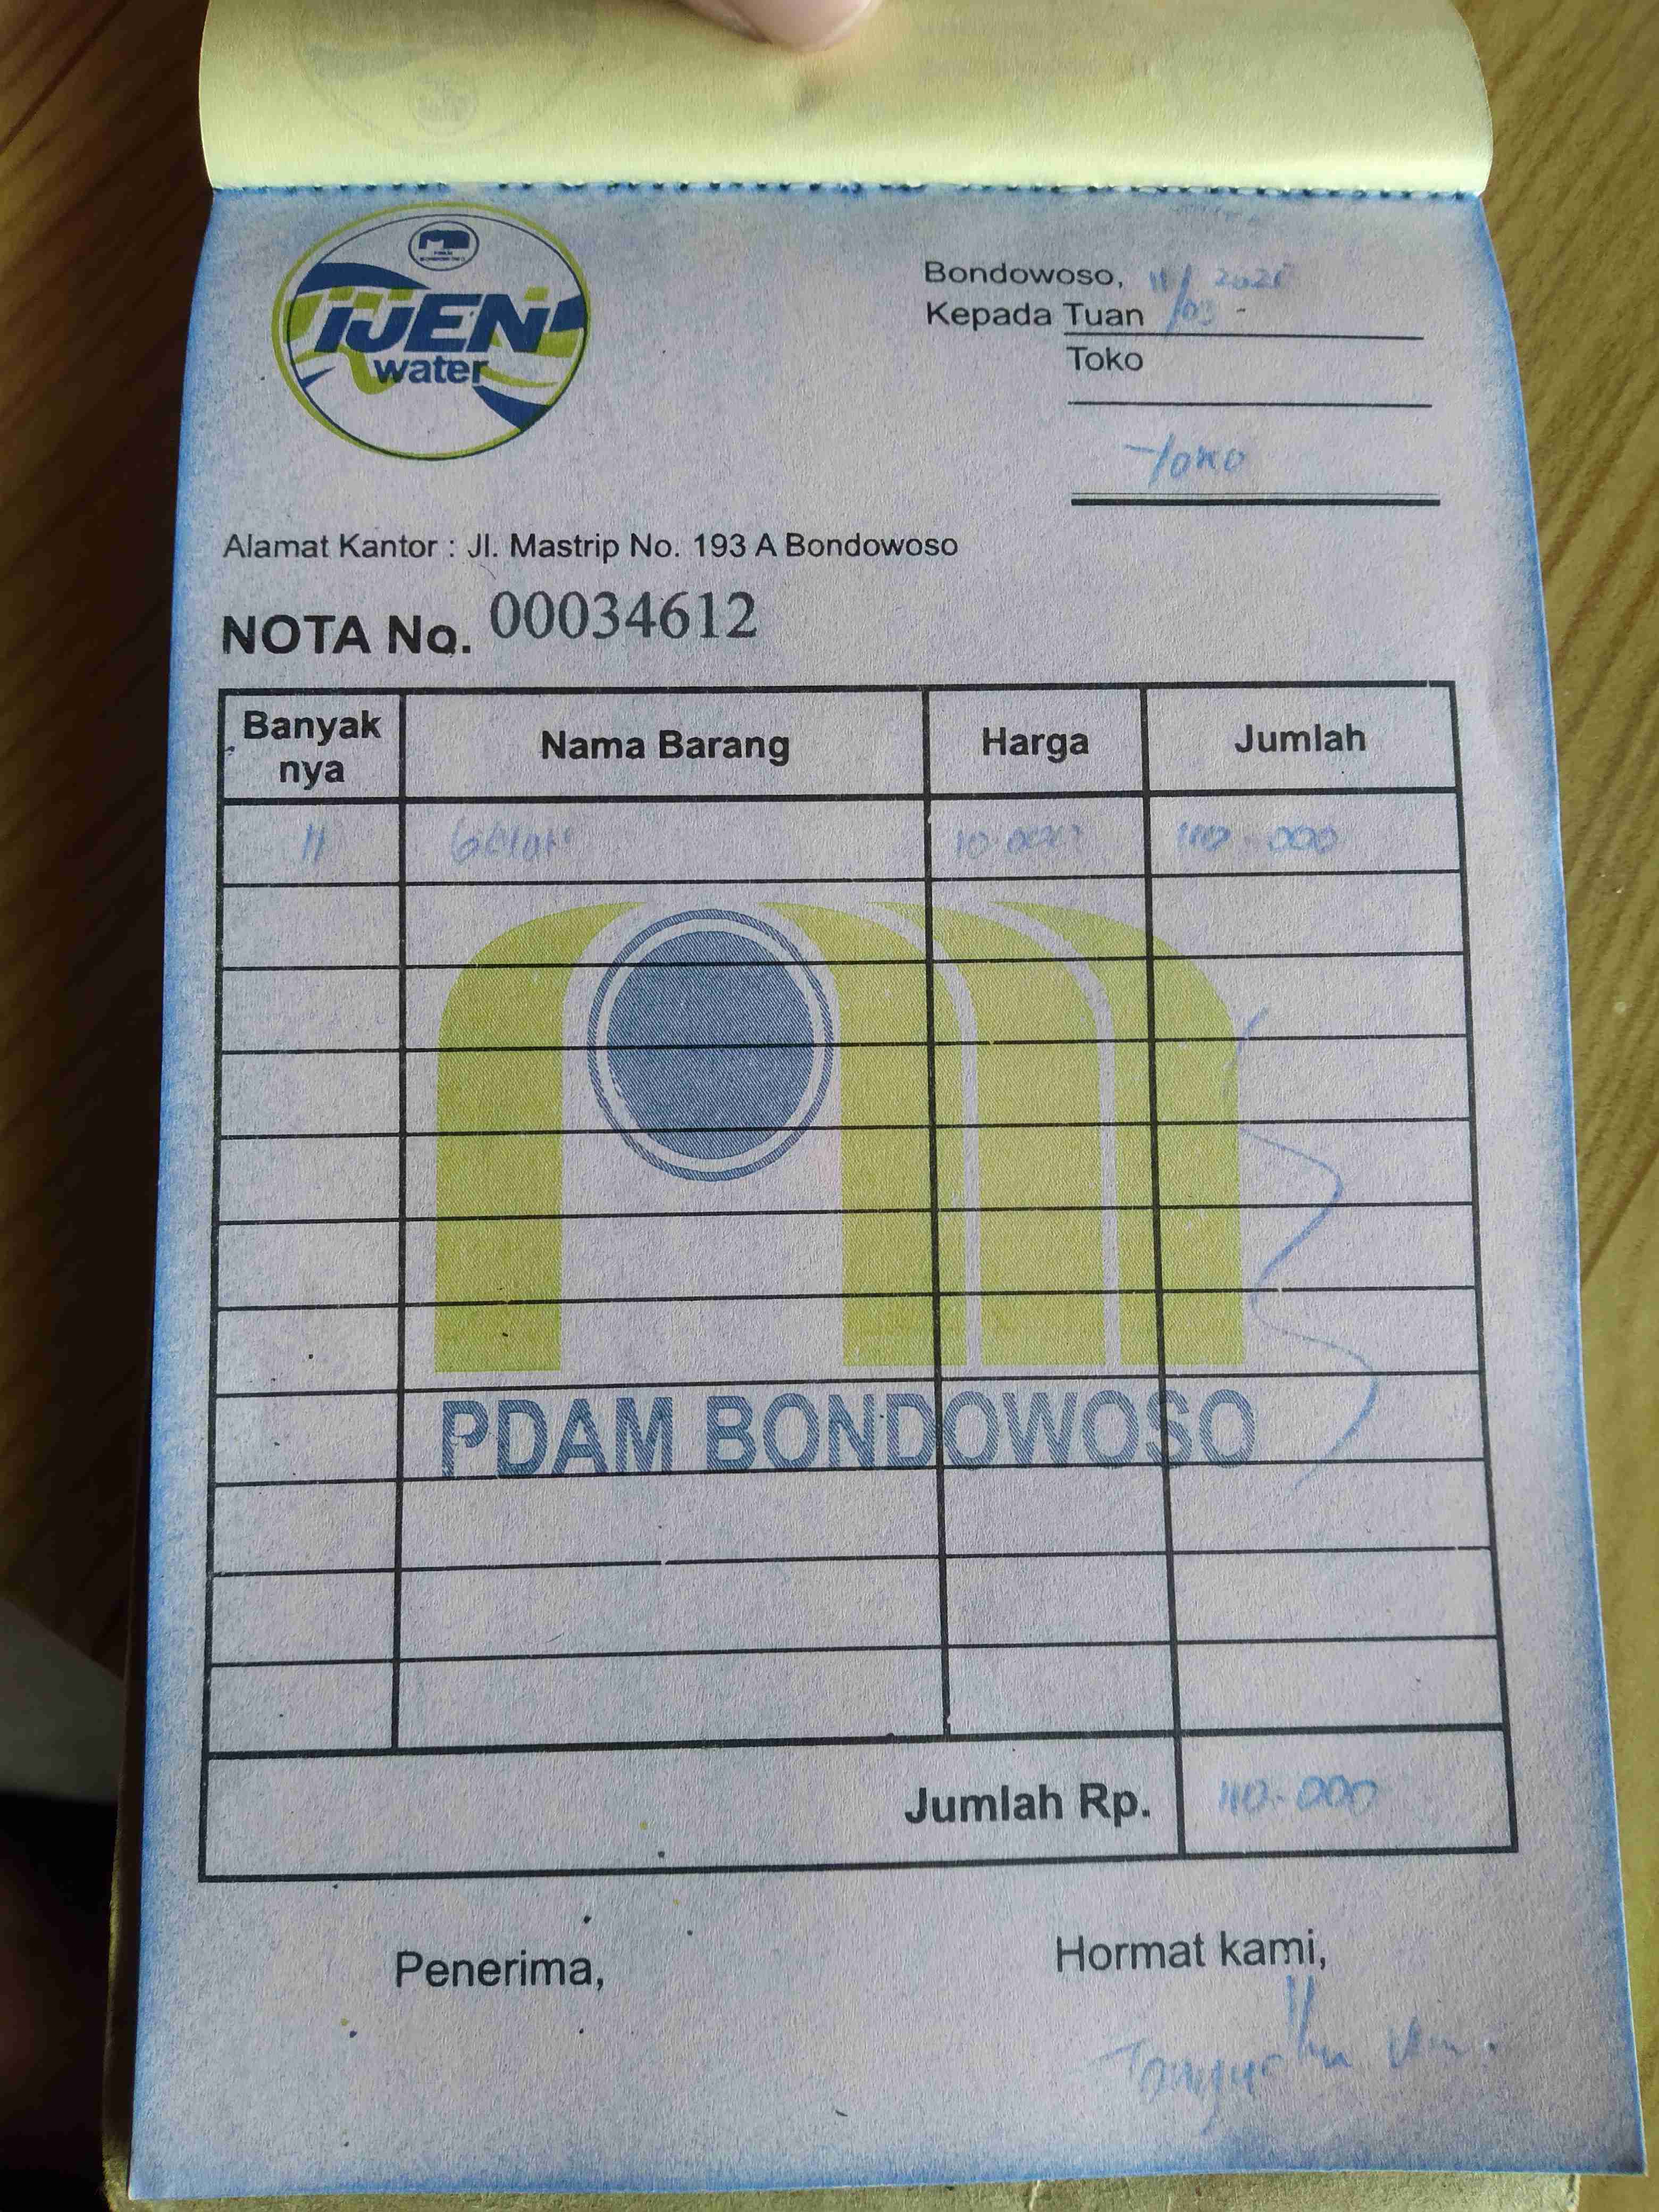 iJEN
water
Bondowoso, 11/03 2025
Kepada Tuan
Toko
Toko
Alamat Kantor : Jl. Mastrip No. 193 A Bondowoso
NOTA No. 00034612
Banyak nya Nama Barang Harga Jumlah
11 Galon 10.000 110.000
PDAM BONDOWOSO
Jumlah Rp. 110.000
Penerima, Hormat kami,